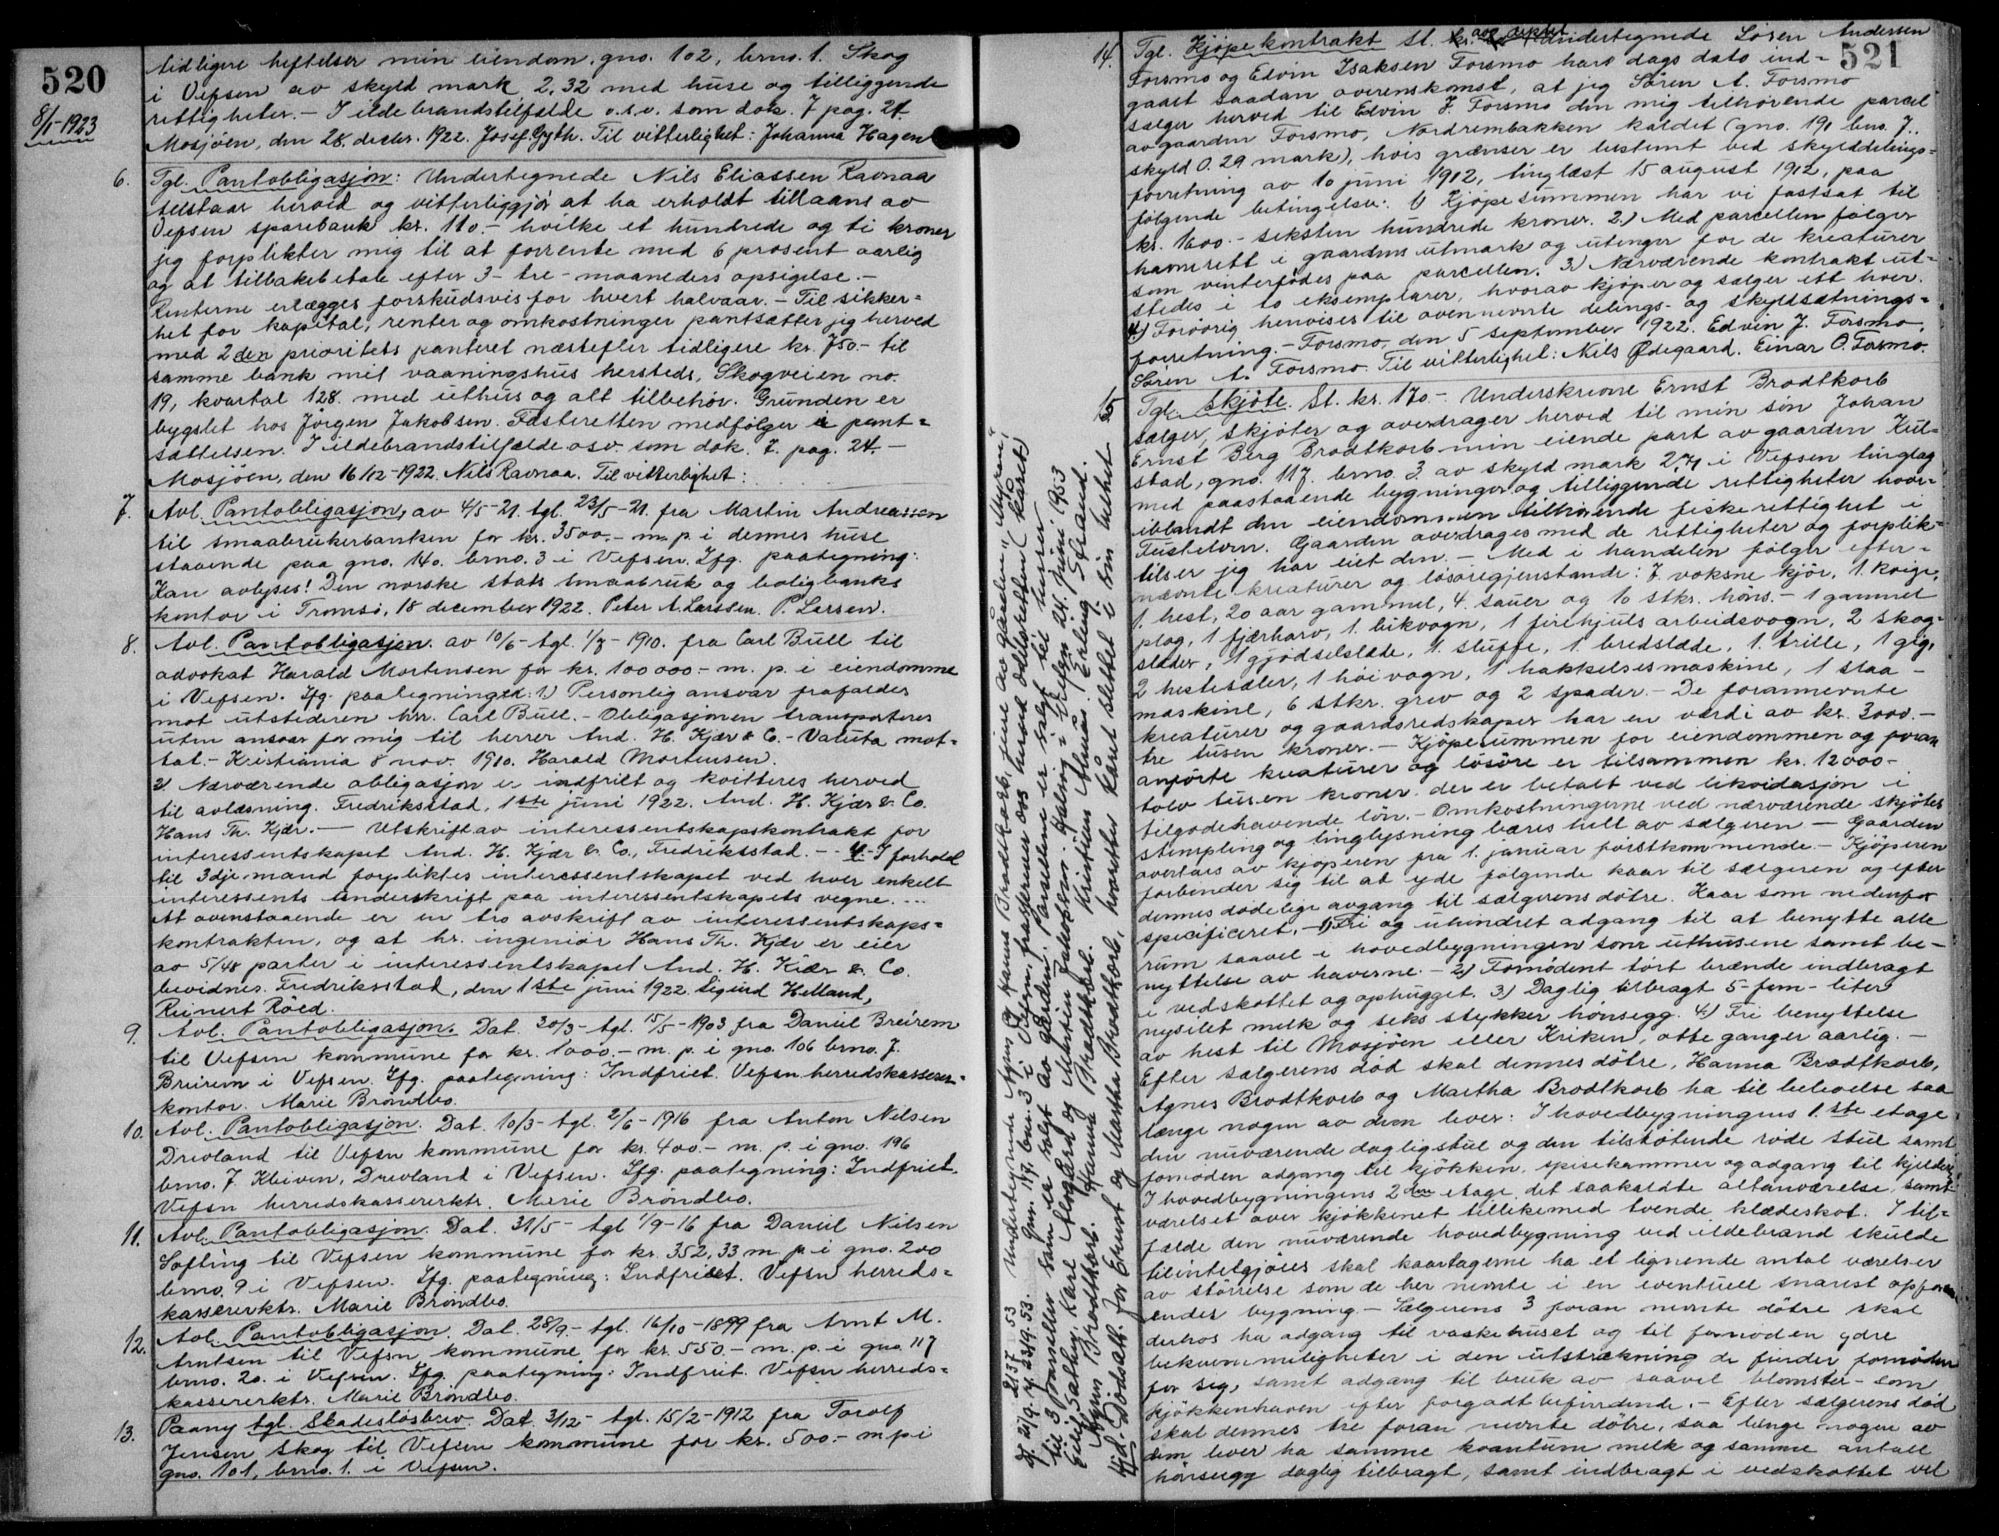 520
8/1-1923
tidligere heftelser min eiendom, gno. 102, brno. 1. Skog
i Vefsen av skyld mark 2,32 med huse og tilliggende
rettigheter. - I ildebrandstilfælde o.s.v. som dok. 7 pag. 24.
Mosjøen, den 28. decbr. 1922. Josef Gyth. Til vitterlighet: Johanna Hagen
6. Tgl. Pantobligasjon: Undertegnede Nils Eliassen Ravnaa
tilstaar herved og vitterliggjør at ha erholdt tillaans av
Vefsen sparebank kr. 110.- hvilke et hundrede og ti kroner
jeg forplikter mig til at forrente med 6 prosent aarlig
og at tilbakebetale efter 3- tre- maaneders opsigelse. -
Renterne erlægges forskudsvis for hvert halvaar. - Til sikker-
het for kapital, renter og omkostninger pantsætter jeg herved
med 2den prioritets panteret næstefter tidligere kr. 750.- til
samme bank mit vaaningshus hersteds, Skogveien no.
19, kvartal 128 med uthus og alt tilbehør. Grunden er
bygslet hos Jørgen Jakobsen. Festeretten medfølger i pant-
sættelsen. I ildebrandstilfælde osv. som dok. 7. pag. 24. -
Mosjøen, den 16/12-1922. Nils Ravnaa. Til vitterlighet:
7. Avl. Pantobligasjon, av 4/5-21. tgl. 23/5-21. fra Martin Andreassen
til Smaabrukerbanken for kr. 3500.- m.p. i dennes huse
staaende paa gno. 140. brno. 3 i Vefsen. Ifg. paategning:
Kan avlyses! Den norske stats smaabruk og boligbanks
kontor i Tromsø, 18 december 1922. Peter A. Larssen. P. Larsen.
8. Avl. Pantobligasjon. av 10/6- tgl. 1/8-1910. fra Carl Bull til
advokat Harald Mortensen for kr. 100000.- m. p. i eiendomme
i Vefsen. Ifg. paategninger: 1) Personlig ansvar frafaldes
mot utstederen hr. Carl Bull. - Obligasjonen transporteres
uten ansvar for mig til herrer And. H. Kjær & Co. - Valuta mot-
tat. - Kristiania 8 nov. 1910. Harald Mortensen.
2. Nærværende obligasjon er indfriet og kvitteres herved
til avlæsning. Fredriksstad, 1ste juni 1922. And. H. Kjær & Co.
Hans Th. Kjær. - Utskrift av interessentskapskontrakt for
interessentskapet And. H. Kjær & Co., Fredriksstad. - - 4. - I forhold
til 3dje mand forpliktes interessentskapet ved hver enkelt
interessents underskrift paa interessentskapets vegne. ...
At ovenstaaende er en tro avskrift av interessentskaps-
kontrakten, og at hr. ingeniør Hans Th. Kjær er eier
av 5/48 parter i interessentskapet And. H. Kjær & Co.
bevidnes. Fredriksstad, den 1ste juni 1922. Sigurd Helland,
Reinert Röed.
9. Avl. Pantobligasjon. Dat. 30/3- tgl. 15/5-1903 fra Daniel Breirem
til Vefsen kommune for kr. 1000.- m. p. i gno. 106 brno. 7.
Breirem i Vefsen. Ifg. paategning: Indfriet. Vefsn herredskasserer-
kontor. Marie Brøndbo.
10. Avl. Pantobligasjon. Dat. 10/3- tgl. 2/6-1916 fra Anton Nilsen
Drevland til Vefsn kommune for kr. 400.- m. p. i gno. 196
brno. 7 Kleiven, Drevland i Vefsen. Ifg. paategning: Indfriet.
Vefsn herredskassererktr. Marie Brøndbo.
11. Avl. Pantobligasjon. Dat. 31/5- tgl 1/9-16 fra Daniel Nilsen
Søfting til Vefsen kommune for kr. 352,33 m. p. i gno. 200
brno. 9 i Vefsen. Ifg. paategning: Indfriet. Vefsn herreds-
kassererktr. Marie Brøndbo.
12. Avl. Pantobligasjon. Dat. 28/9- tgl. 16/10-1899 fra Arnt M.
Arntsen til Vefsn kommune for kr. 550.- m. p. i gno. 117
brno. 20. i Vefsen. Ifg. paategning: Indfriet. Vefsen herreds-
kassererktr. Marie Brøndbo.
13. Paany tgl. Skadesløsbrev. Dat. 3/12- tgl. 15/2-1912 fra Torolf
Jensen Skog til Vefsen kommune for kr. 500.- m.p.i
gno. 101, brno. 1. i Vefsen.
Undertegnede Agnes og Hanna Brodtkorb, eiere av gården "Myren",
Gnr. 117. bnr. 3 i Vefsn, fraskriver oss herved odelsretten (kåret)
til 3 parseller som er solgt av gården. Parsellene er solgt til husene
Eilif Sathey, Kåre Alogård og Martin Jakobsen. Halsøy i Vefsn 24. juni 1953
Agnes Brodtkorb. Hanna Brodtkorb. Kristian Aanes. Erling Strand.
Hjd. Dødsatt. for Ernst og Martha Brodtkorb, hvoretter kåret slettet i sin helhet
521
14. Tgl. Kjøpekontrakt St. Undertegnede Søren Andersen
Forsmo og Edvin Isaksen Forsmo har dags dato ind-
gaat saadan overenskomst, at jeg Søren A. Forsmo
sælger herved til Edvin J. Forsmo den mig tilhørende parcel
av gaarden Forsmo, Nordrembakken kaldet (gno. 191 bno. 7.,
skyld 0.29 mark), hvis grænser er bestemt ved skylddelings-
forretning av 10 juni 1912, tinglæst 15 august 1912, paa
følgende betingelser: 1) Kjøpesummen har vi fastsat til
kr. 1600.- seksten hundrede kroner. 2.) Med parcellen følger
havnerett i gaardens utmark og utenger for de kreaturer
som vinterfødes paa parcellen. 3.) Nærværende kontrakt ut-
stedes i to eksemplarer, hvorav kjøper og sælger ett hver.
4) Forøvrig henvises til ovennevnte delings- og skyldsætnings-
forretning. - Forsmo, den 5 september 1922. Edvin J. Forsmo.
Søren A. Forsmo. Til vitterlighet: Nils Ødegaard. Einar O. Forsmo.
15 Tgl. Skjøte. St. kr. 170.- Underskrevne Ernst Brodtkorb
sælger, skjøter og overdrager herved til min søn Johan
Ernst Berg Brodtkorb min eiende part av gaarden Kul-
stad, gno. 117. brno. 3. av skyld mark 2,71 i Vefsen tinglag
med paastaaende bygninger og tilliggende rettigheter hvor-
iblandt den eiendommen tilhørende fiskerettighet i
Fustelven. Gaarden overdrages med de rettigheter og forplik-
telser jeg har eiet den. - Med i handelen følger efter-
nævnte kreaturer og løsøregjenstande: 7 voksne kjør, 1 kvige,
1. hest, 20 aar gammel, 4. sauer og 10 stkr. høns. - 1 gammel
plog, 1 fjærharv, 1. likvogn, 1 firehjuls arbeidsvogn, 2 skog-
slæder, 1 gjødselslæde, 1. sluffe, 1 bredslæde, 1. trille, 1 gig,
2 hestesæler, 1 høivogn, 1 hakkelsesmaskine, 1 slaa-
maskine, 6 stkr. grev og 2 spader. - De forannevnte
kreaturer og gaardsredskaper har en værdi av kr. 3000.-
tre tusen kroner. - Kjøpesummen for eiendommen og foran
anførte kreaturer og løsøre er tilsammen kr. 12000.-
tolv tusen kroner. der er betalt ved likvidasjon i
tilgodehavende løn. - Omkostningerne ved nærværende skjøtes
stempling og tinglysning bæres helt av sælgeren - Gaarden
overtas av kjøperen fra 1. januar førstkommende. - Kjøperen
forbender sig til at yde følgende kaar til sælgeren og efter
dennes dødelige avgang til sælgerens døtre. Kaar som nedenfor
specificeret. - 1) Fri og uhindret adgang til at benytte alle
rum saavel i hovedbygningen som uthusene samt be-
nyttelse av haverne. - 2) Fornødent tørt brænde indbragt
i vedskottet og ophugget. 3) Daglig tilbragt 5- fem- liter
nysilet melk og seks stykker hønsegg. 4) Fri benyttelse
av hest til Mosjøen eller Kirken, otte ganger aarlig. -
Efter sælgerens død skal dennes døtre, Hanna Brodtkorb,
Agnes Brodtkorb og Martha Brodtkorb ha til beboelse saa
længe nogen av dem lever: I hovedbygningens 1.ste etage
den nuværende dagligstue og den tilstøtende røde stue samt
fornøden adgang til kjøkken, spisekammer og adgang til kjelder.
I hovedbygningens 2den etage, det saakaldte altanværelse, samt
værelset over kjøkkenet tillikemed tvende klædeskot. I til-
fælde den nuværende hovedbygning ved ildebrand skulde
tilintetgjøres skal kaartagerne ha et lignende antal værelser
av størrelse som de her nevnte i en eventuell snarest opfør-
endes bygning - Sælgerens 3 foran nevnte døtre skal
derhos ha adgang til vaskehuset og til fornøden ydre
bekvemmeligheter i den utstrækning de finder fornøden
for sig, samt adgang til bruk av saavel blomster- som
kjøkkenhaven efter forgodtbefindende. - Efter sælgerens død
skal dennes tre foran nevnte døtre, saa længe nogen av
dem lever ha samme kvantum melk og samme antall
hønsegg daglig tilbragt, samt indbragt i vedskottet vel